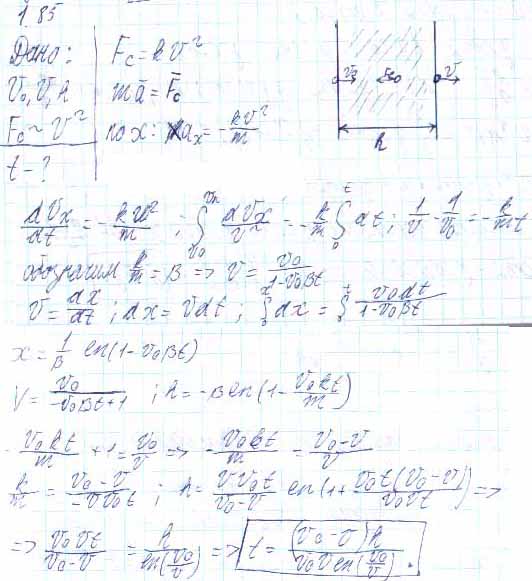 1.85
Дано: F_c = kv²
v₀, v, h   mā = F̄_c
F_c ~ v²   по x: a_x = -kv²/m
t - ?
v₀ F_c v
h
dv_x/dt = -kv²/m ; ∫ dv_x/v² = -k/m ∫₀ᵗ dt ; 1/v - 1/v₀ = -k/m t
обозначим k/m = β => v = v₀/(1-v₀βt)
v = dx/dt ; dx = vdt ; ∫dx = ∫ v₀dt/(1-v₀βt)
x = 1/β ln(1-v₀βt)
V = v₀/(-v₀βt+1) ; h = -β ln(1 - v₀kt/m)
-v₀kt/m + 1 = v₀/v => -v₀kt/m = (v₀-v)/v
k/m = (v₀-v)/(-vv₀t) ; h = vv₀t/(v₀-v) ln(1 + v₀t(v₀-v)/(v₀vt)) =>
=> v₀vt/(v₀-v) = h/ln(v₀/v) => t = (v₀-v)h/(v₀v ln(v₀/v)) .